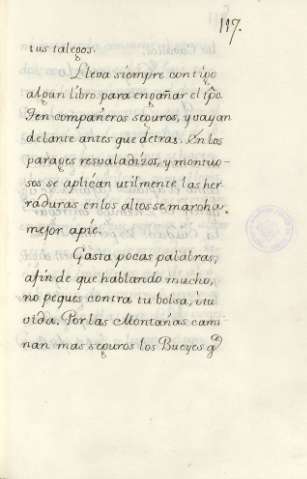 117.
tus talegos.
Lleva siempre contigo
algun libro para engañar el tpõ.
Ten compañeros seguros, y vayan
delante antes que detras. En los
parages resvaladizos, y montuo-
sos se aplican utilmente las her
raduras en los altos se marcha
mejor apie.
Gasta pocas palabras,
afin de que hablando mucho,
no pegues contra tu bolsa, i tu
vida. Por las Montañas cami
nan mas seguros los Bueyes q